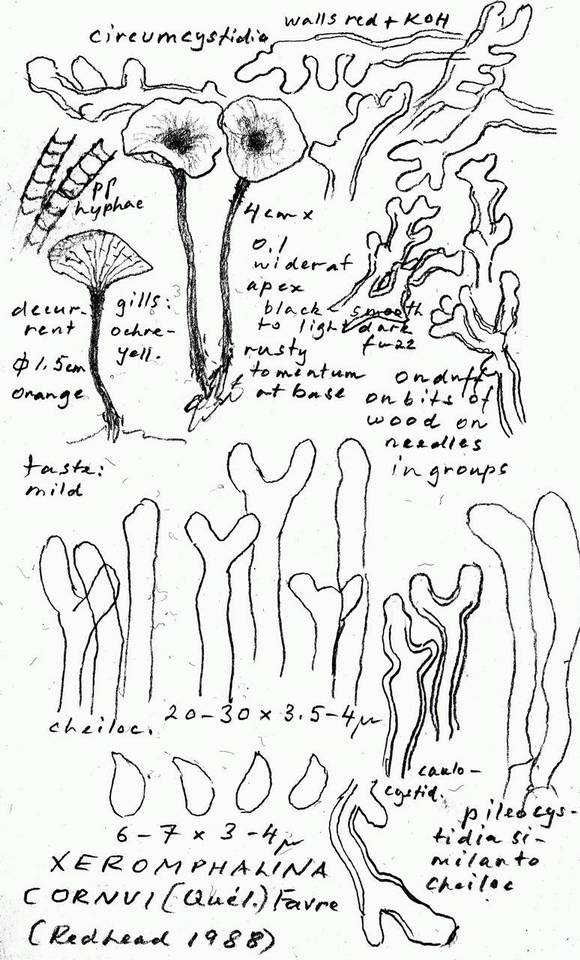 circumcystidia
walls red + KOH
pp
hyphae
4 cm x
0.1
wider at
apex
black - smooth
to light dark
fuzz
rusty
tomentum
at base
decur-
rent
gills:
ochre-
yell.
ϕ 1.5cm
orange
on duff
on bits of
wood on
needles
in groups
taste:
mild
cheiloc. 20-30 x 3.5-4μ
caulo-
cystid.
pileocys-
tidia si-
milar to
cheiloc
6-7 x 3-4μ
XEROMPHALINA
CORNUI (Quél.) Favre
(Redhead 1988)